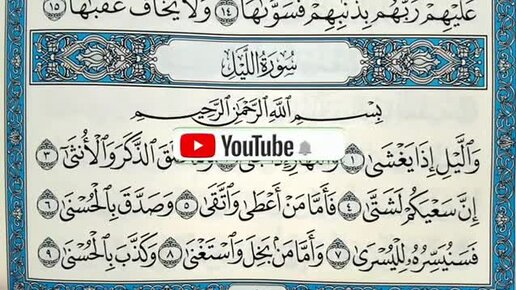 عَلَيْهِمْ رَبُّهُم بِذَنۢبِهِمْ فَسَوَّىٰهَا ١٤ وَلَا يَخَافُ عُقْبَٰهَا ١٥
سُورَةُ اللَّيْلِ
بِسْمِ ٱللَّهِ ٱلرَّحْمَٰنِ ٱلرَّحِيمِ
YouTube
وَٱلَّيْلِ إِذَا يَغْشَىٰ ١ ٱلذَّكَرَ وَٱلْأُنثَىٰٓ ٣
إِنَّ سَعْيَكُمْ لَشَتَّىٰ ٤ فَأَمَّا مَنْ أَعْطَىٰ وَٱتَّقَىٰ ٥ وَصَدَّقَ بِٱلْحُسْنَىٰ ٦
فَسَنُيَسِّرُهُۥ لِلْيُسْرَىٰ ٧ وَأَمَّا مَنۢ بَخِلَ وَٱسْتَغْنَىٰ ٨ وَكَذَّبَ بِٱلْحُسْنَىٰ ٩